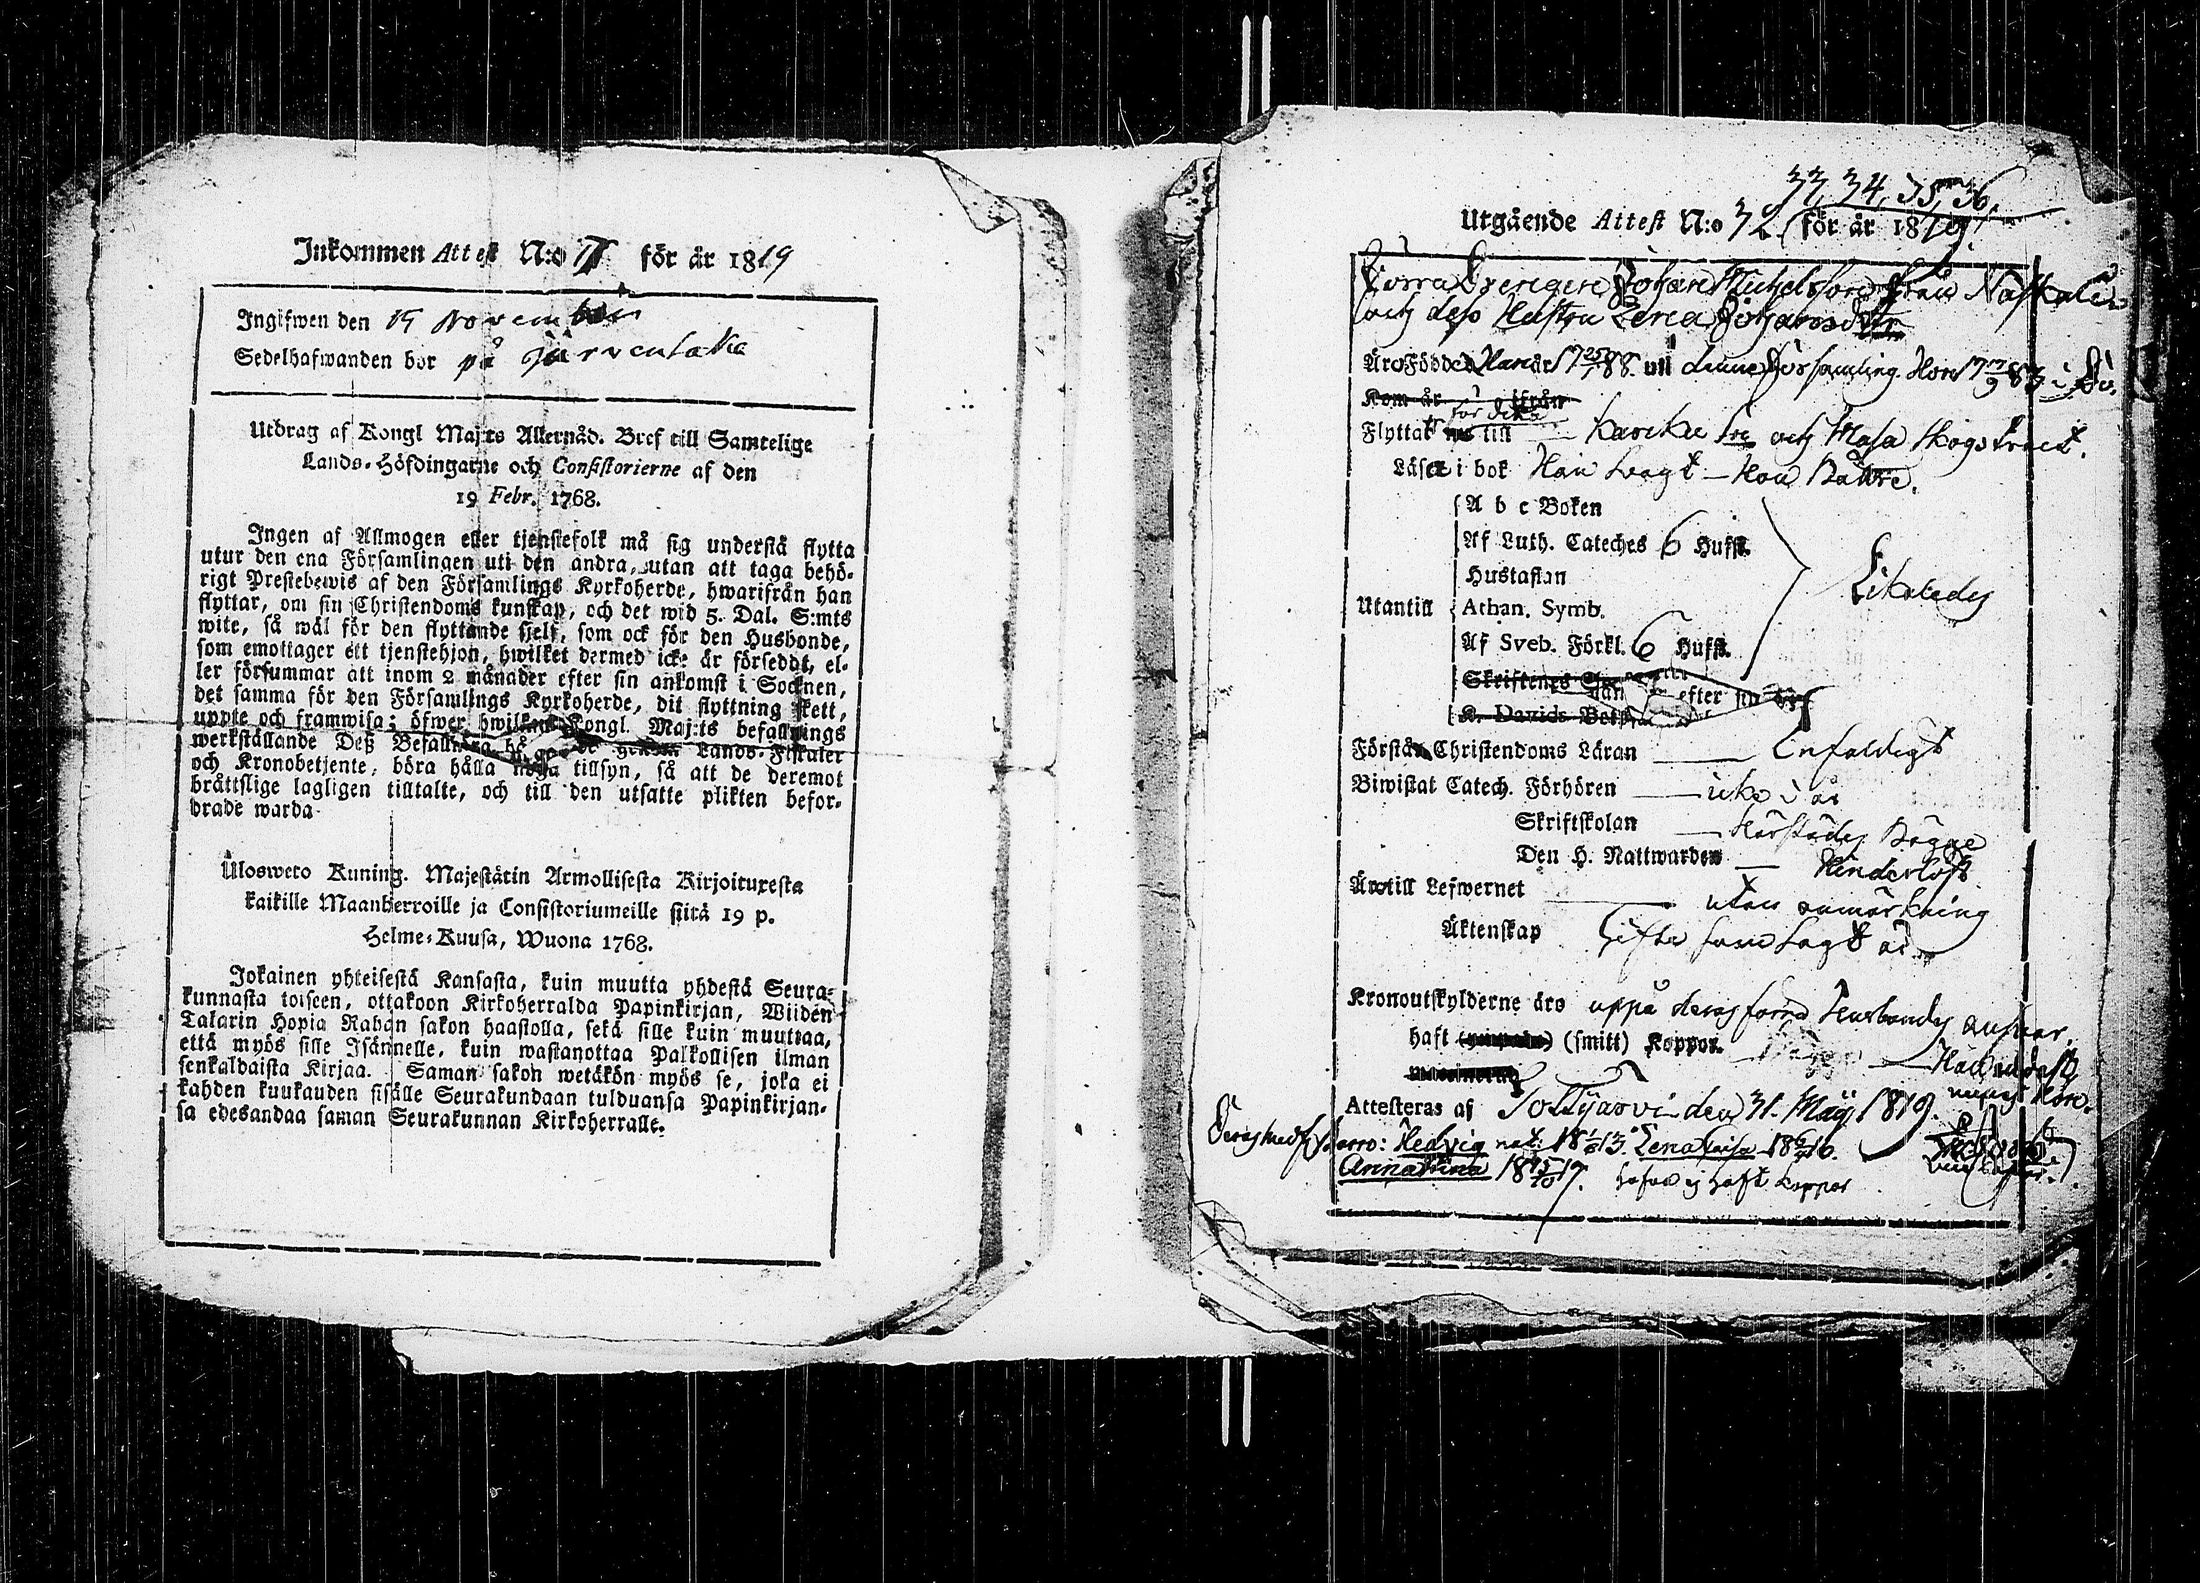 Inkommen Attest N:o för år 1819
Ingifwen den 19 November
Sedelhafwanden bor på Järvenlake
Utdrag af Kongl Maj:ts Allernåd. Bref till Samtelige
Lands-Höfdingarne och Consistorierne af den
19 Febr. 1768.
Ingen af Allmogen eller tjenstefolk må sig understå flytta
utur den ena Församlingen uti den andra, utan att taga behö-
rigt Prestebewis af den Församlings Kyrkoherde, hwarifrån han
flyttar, om sin Christendoms kunskap, och det wid 5. Dal. S:mts
wite, så wäl för den flyttande sjelf, som ock för den Husbonde,
som emottager ett tjenstehjon, hwilket dermed icke är försedt, el-
ler försummar att inom 2 månader efter sin ankomst i Socknen,
det samma för den Församlings Kyrkoherde, dit flyttning skett,
uppte och framwisa; öfwer hwilken Kongl. Maj:ts befallnings
werkställande Deß Befallnings Lands-Fiskaler
och Kronobetjente, böra hålla noga tillsyn, så att de deremot
bråttslige lagligen tilltalte, och till den utsatte plikten befor-
drade warda.
Ulosweto Kuning. Majestätin Armollisesta Kirjoituxesta
kaikille Maanherroille ja Consistoriumeille siitä 19 p.
Helme-Kuusa, Wuona 1768.
Jokainen yhteisestä Kansasta, kuin muutta yhdestä Seura-
kunnasta toiseen, ottakoon Kirkoherralda Papinkirjan, Wiiden
Talarin Hopia Rahan sakon haastolla, sekä sille kuin muuttaa,
että myös sille Isännelle, kuin wastanottaa Palkollisen ilman
senkaldaista Kirjaa. Saman sakon wetäkön myös se, joka ei
kahden kuukauden sisälle Seurakundaan tulduansa Papinkirjan-
sa edesandaa saman Seurakunnan Kirkoherralle.
33, 34, 35, 36
Utgående Attest N:o 32 för år 1819.
Förra Johan Michelsson från
och dess Hustru Lena Johansdtr
Äro Födde Han år 17 25/1 88 uti denne Församling. Hon 17
Kom år ifrån
Flyttat till och Masa skogstract.
Läser i bok Han Swagt – Hon Bättre.
A b c Boken
Af Luth. Cateches 6 Hufst.
Hustaflan
Utantill Athan. Symb. Likaledes
Af Sveb. Förkl. 6 Hufst.
Skriftenes efter
K. Davids
Förstår Christendoms Läran Enfaldigt
Biwistat Catech. Förhören icke i år
Skriftskolan Härstädes Bägge
Den H. Nattwarden Hinderlöst
Äro till Lefwernet utan anmärkning
Äktenskap Gifte som sagt är
Kronoutskylderne äro uppå deras förra Husbondes answar.
haft (smitt) Koppor.
Attesteras af Pottijärvi den 31. Maij 1819.
Deras medf. barn: Hedvig nat: 18 1/6 13. Lena Caisa 1816.
Anna Stina 18 15/10 17. hafwa ej haft koppor